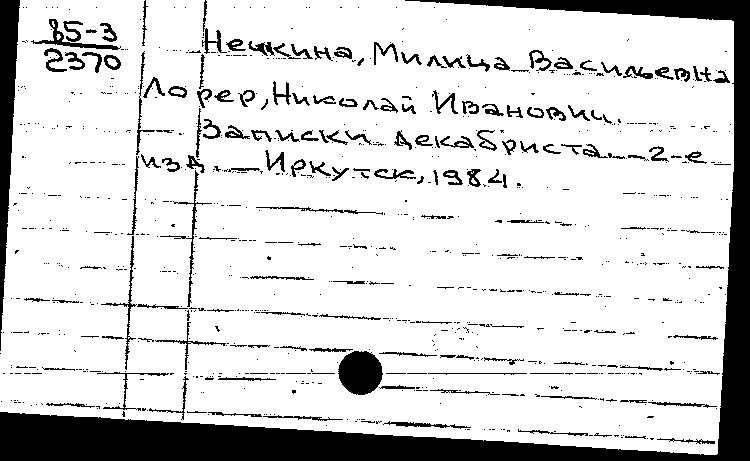 85-3
2370
Нечкина, Милица Васильевна
Лорер, Николай Иванович.
Записки декабриста. – 2-е
изд. – Иркутск, 1984.